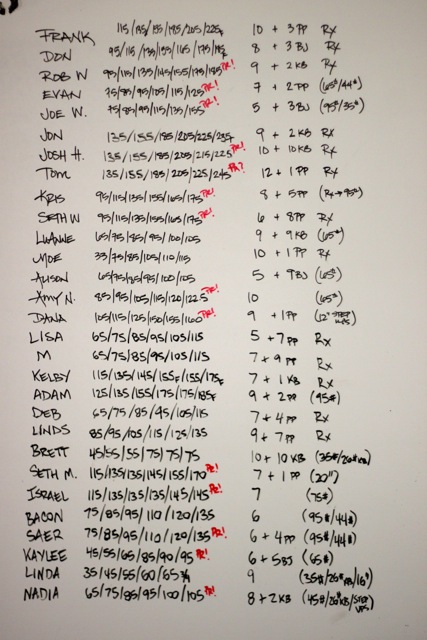 FRANK 115/135/155/185/205/225F 10 + 3PP Rx
DON 95/115/135/155/165/175/185 8 + 3BJ Rx
ROB W 95/115/135/145/155/175/185 PR! 9 + 2KB Rx
EVAN 75/85/95/105/115/125 PR! 7 + 2PP (65#/44#)
JOE W. 75/85/95/115/135/155 PR! 5 + 3BJ (95#/35#)
JON 135/155/185/205/225/235F 9 + 2KB Rx
JOSH H. 135/155/185/205/215/225 PR! 10 + 10KB Rx
TOM 135/155/185/205/225/245 PR? 12 + 1PP Rx
KRIS 95/115/135/155/165/175 PR! 8 + 5PP (Rx→95#)
SETH W 95/115/135/155/165/175 PR! 6 + 8PP Rx
LUANNE 65/75/85/95/100/105 9 + 9KB (65#)
MOE 10 + 1PP Rx
ALISON 65/75/85/95/100/105 5 + 9BJ (65#)
AMY N. 85/95/105/115/120/122.5 PR! 10 (65#)
DANA 105/115/125/150/155/160 PR! 9 + 1PP (12" STEP UPS)
LISA 65/75/85/95/105/115 5 + 7PP Rx
M 65/75/85/95/105/115 7 + 9PP Rx
KELBY 115/135/145/155F/155/175F 7 + 1KB Rx
ADAM 125/135/155/175/175/185F 9 + 2PP (95#)
DEB 65/75/85/95/105/115 7 + 4PP Rx
LINDS 85/95/105/115/125/135 9 + 7PP Rx
BRETT 45/55/55/75/75/75 10 + 10KB (35#/26#KB)
SETH M. 115/135/135/145/155/170 PR! 7 + 1PP (20")
ISRAEL 115/135/135/135/145/145 PR! 7 (75#)
BACON 75/85/95/110/120/135 6 (95#/44#)
SAER 75/85/95/110/120/135 PR! 6 + 4PP (95#/44#)
KAYLEE 45/55/65/85/90/95 PR! 6 + 5BJ (65#)
LINDA 35/45/55/60/65 9
NADIA 65/75/85/95/100/105 PR! 8 + 2KB (45#/26#KB/STEP UPS)